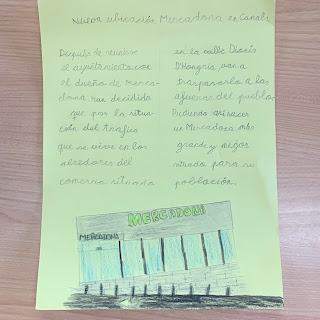 Nueva ubicación Mercadona en Canals
Después de reunirse
el ayuntamiento con
el dueño de Merca-
dona han decidido
que por la situa-
ción del trafico
que se vive en los
alrededores del
comercio situado
en la calle
D'Hongria, van a
traspasarlo a las
afueras del pueblo
Pudiendo así hacer
un Mercadona más
grande y mejor
situado para su
población.
MERCADONA
MERCADONA